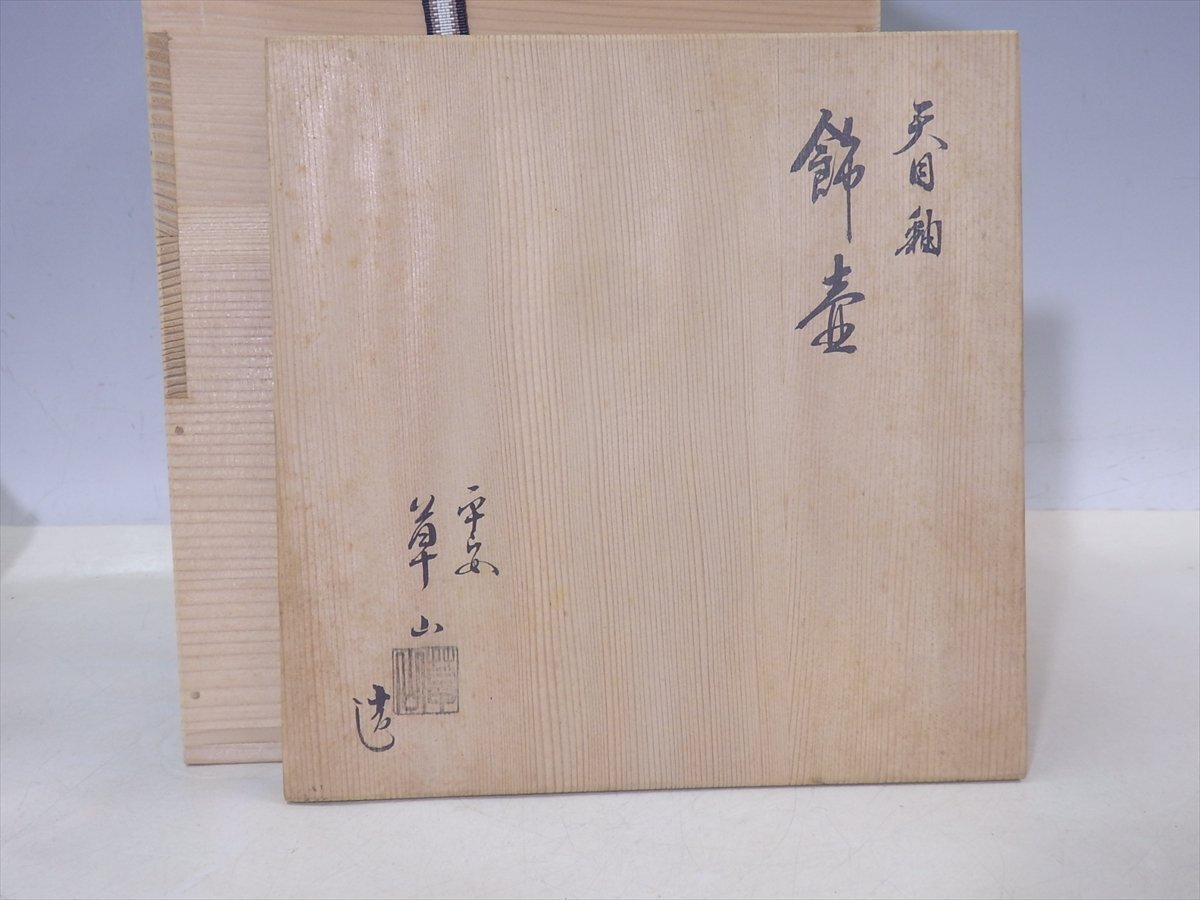 天目釉
飾壷
平安
草山
造